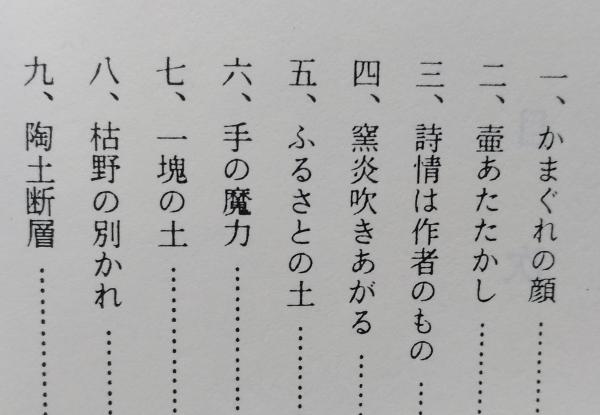 一、かまぐれの顔……
二、壷あたたかし……
三、詩情は作者のもの……
四、窯炎吹きあがる……
五、ふるさとの土……
六、手の魔力……
七、一塊の土……
八、枯野の別かれ……
九、陶土断層……